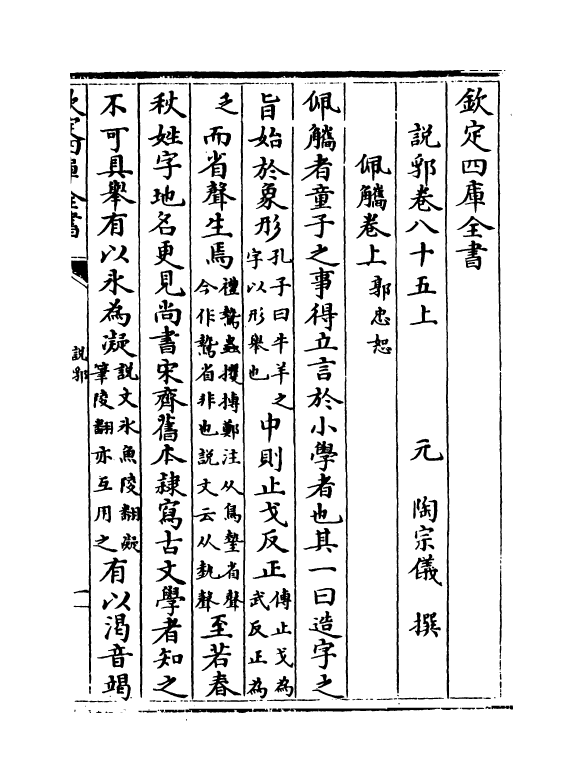 欽定四庫全書
說郛卷八十五上 元 陶宗儀 撰
佩觿卷上 郭忠恕
佩觿者童子之事得立言於小學者也其一曰造字之
旨始於象形孔子曰牛羊之字以形舉也中則止戈反正傳止戈為武反正為
乏而省聲生焉禮鷙蟲攫搏鄭注从鳥摯省聲今作鷙省非也說文云从執聲至若春
秋姓字地名更見尚書宋齊舊本隸寫古文學者知之
不可具舉有以氷為凝說文氷魚陵翻凝筆陵翻亦互用之有以渴音竭
欽定四庫全書
說郛
一